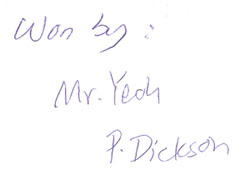 Won by :
Mr. Yeoh
P. Dickson